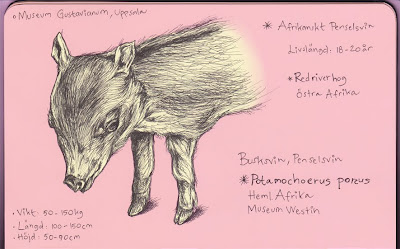 • Museum Gustavianum, Uppsala
* Afrikanskt Penselsvin
Livslängd: 18-20 år
* Red river hog
Östra Afrika
Busksvin, Penselsvin
* Potamochoerus porcus
Heml. Afrika
Museum Westin
• Vikt: 50-150kg
• Längd: 100-150cm
• Höjd: 50-90cm